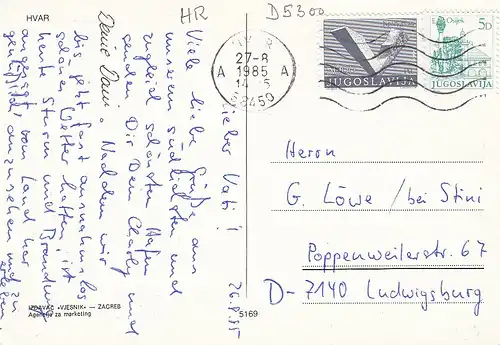 HVAR
HR
D5300
27-8
A 1985 A
14-15
58450
JUGOSLAVIJA
Osijek
5D
JUGOSLAVIJA
26.8.85
Lieber Vati!
Viele liebe Grüße aus
unserem südlichsten und
zugleich schönsten Hafen
senden Dir Dein Charly und
Deine Dani. Nachdem wir
bis jetzt fast ausnahmslos
schönes Wetter hatten, ist
heute Sturm und Brandung
angesagt, vom Land her
anzusehen und zu
erleben
Herrn
G. Löwe / bei Stini
Poppenweilerstr. 67
D-7140 Ludwigsburg
IZDAVAČ «VJESNIK» — ZAGREB
Agencija za marketing
5169